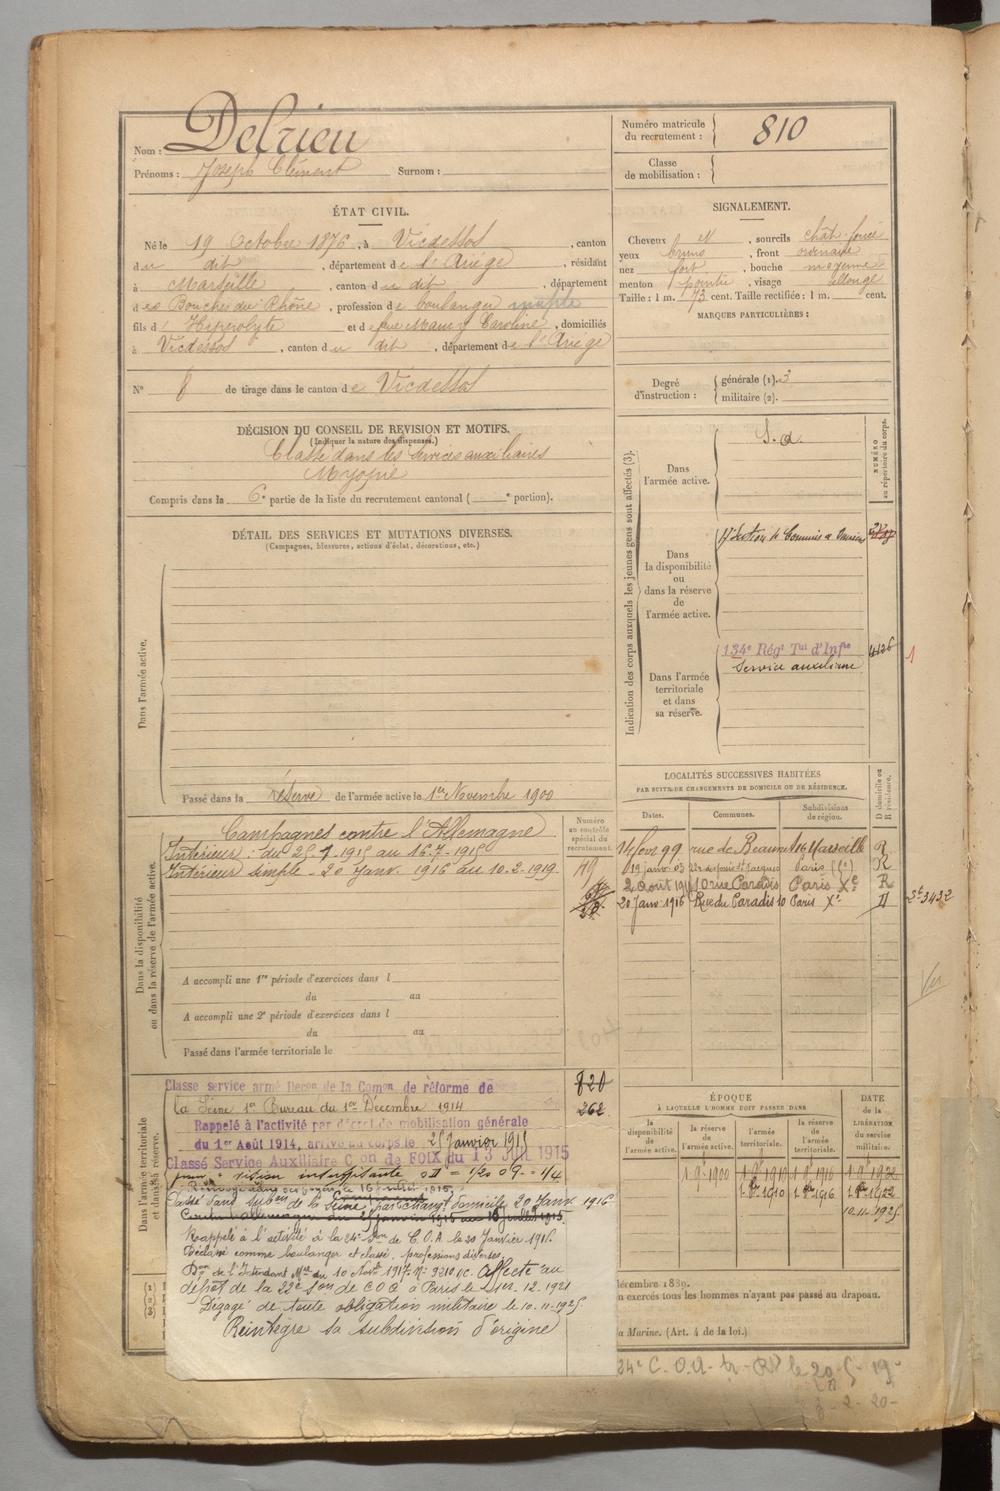 Nom : Delrieu
Prénoms : Joseph Clément Surnom :
Numéro matricule du recrutement : 810
Classe de mobilisation :
ÉTAT CIVIL.
Né le 19 Octobre 1876, à Vicdessos, canton
du dit, département de l'Ariège, résidant
à Marseille, canton du dit, département
des Bouches du Rhône, profession de boulanger
fils d' Hippolyte et de feue Maury Caroline, domiciliés
à Vicdessos, canton du dit, département de l'Ariège
N° 8 de tirage dans le canton de Vicdessos
SIGNALEMENT.
Cheveux N, sourcils chât. foncé
yeux bruns, front ordinaire
nez fort, bouche moyenne
menton pointu, visage allongé
Taille : 1 m. 73 cent. Taille rectifiée : 1 m. cent.
MARQUES PARTICULIÈRES :
Degré d'instruction : générale (1). 3
militaire (2).
DÉCISION DU CONSEIL DE REVISION ET MOTIFS.
(Indiquer la nature des dispenses.)
Classé dans les services auxiliaires
Myopie
Compris dans la 6e partie de la liste du recrutement cantonal ( e portion).
DÉTAIL DES SERVICES ET MUTATIONS DIVERSES.
(Campagnes, blessures, actions d'éclat, décorations, etc.)
Dans l'armée active.
Passé dans la réserve de l'armée active le 1er Novembre 1900
Indication des corps auxquels les jeunes gens sont affectés (3).
NUMÉRO au répertoire du corps.
Dans l'armée active.
S. a.
Dans la disponibilité ou dans la réserve de l'armée active.
Section de Commis et Ouvriers
Dans l'armée territoriale et dans sa réserve.
134e Régt Tal d'Infie
Service auxiliaire
4126
1
LOCALITÉS SUCCESSIVES HABITÉES
PAR SUITE DE CHANGEMENTS DE DOMICILE OU DE RÉSIDENCE.
Dates. Communes. Subdivisions de région. D domicile ou R résidence.
rue de Beaumt 16 Marseille R
19 janv. 03 Paris R
2 Août 1911 10 rue Paradis Paris Xe R
20 Janv 1916 Rue du Paradis 10 Paris Xe D
3432
Dans la disponibilité ou dans la réserve de l'armée active.
Numéro au contrôle spécial du recrutement.
Campagnes contre l'Allemagne
Intérieur : du 25-1-1915 au 16-7-1915
Intérieur simple - 20 Janv. 1916 au 10-2-1919
A accompli une 1re période d'exercices dans l
du au
A accompli une 2e période d'exercices dans l
du au
Passé dans l'armée territoriale le
Dans l'armée territoriale et dans sa réserve.
820
262
Classé service armé Décon de la Comon de réforme de
la Seine 1er Bureau du 1er Décembre 1914
Rappelé à l'activité par décret de mobilisation générale
du 1er Août 1914, arrivé au corps le 25 Janvier 1915
Classé Service Auxiliaire Con de FOIX du 13 JUIL 1915
pour vision insuffisante OD = 1/20 OG = 1/4
Renvoyé dans ses foyers le 16 juillet 1915.
Passé dans subon de la Seine par changt domicile 20 Janv 1916
Contre l'Allemagne du 25 janvier 1915 au 16 juillet 1915.
Rappelé à l'activité à la 24e Son de C.O.A le 20 Janvier 1916.
Déclaré comme boulanger et classé, professions diverses.
Don de l'Intendant Mre du 10 Novre 1917 No 9210 O.C. Affecté au
dépôt de la 22e Son de C O A à Paris le 1er-12-1921
Dégagé de toute obligation militaire le 10-11-1925
Réintègre sa subdivision d'origine
ÉPOQUE
À LAQUELLE L'HOMME DOIT PASSER DANS
la disponibilité de l'armée active. la réserve de l'armée active. l'armée territoriale. la réserve de l'armée territoriale.
DATE de la LIBÉRATION du service militaire.
1 9bre 1900 1 9bre 1910 1 9bre 1916 1 9bre 1922
1 8bre 1910 1 8bre 1916 1 8bre 1922
10.11.1925
décembre 1889.
n exercés tous les hommes n'ayant pas passé au drapeau.
a Marine. (Art. 4 de la loi.)
24e C.O.A le 20-5-19
2-20-